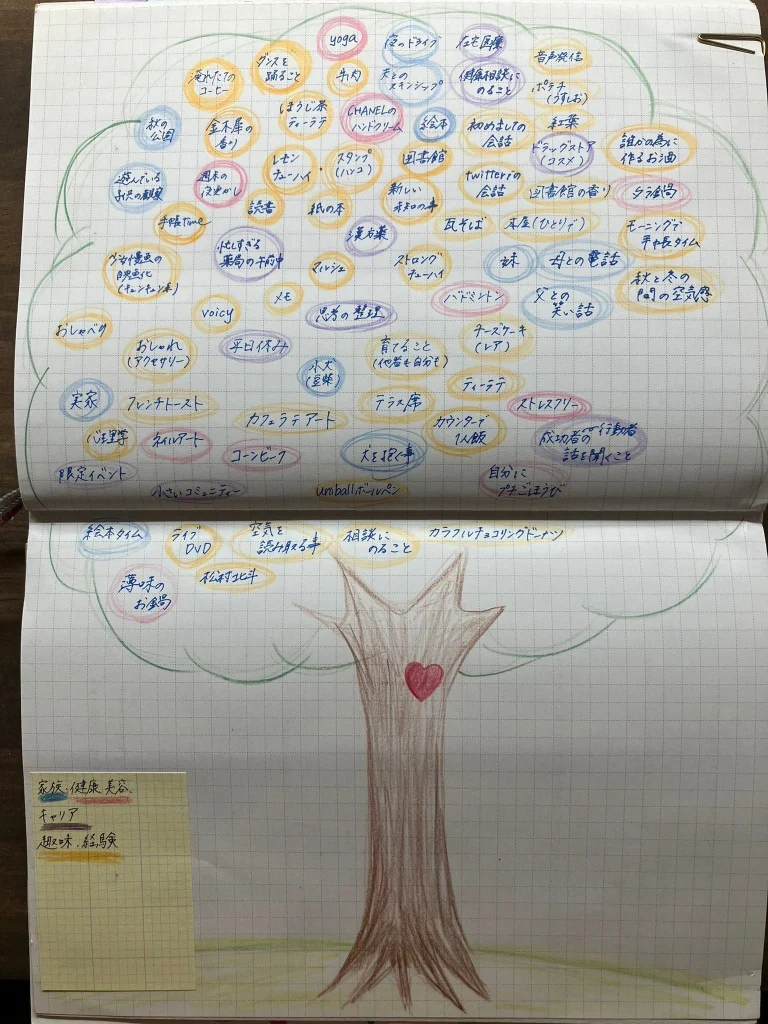 yoga
夜のドライブ
在宅医療
音声発信
淹れたての
コーヒー
ダンスを
踊ること
牛肉
犬との
スキンシップ
健康相談に
のること
ポテチ
(うすしお)
秋の
公園
金木犀の
香り
ほうじ茶
ティーラテ
CHANELの
ハンドクリーム
絵本
初めましての
会話
紅葉
ドラッグストア
(コスメ)
誰かの為に
作るお酒
遊んでいる
子供の観察
週末の
夜更かし
レモン
チューハイ
スタンプ
(ハンコ)
図書館
twitterでの
会話
図書館の香り
タラ鍋
手帳time
読書
紙の本
新しい
未知の事
漢方薬
瓦そば
本屋(ひとりで)
モーニングで
手帳タイム
忙しすぎる
薬局の午前中
マルシェ
ストロング
チューハイ
妹
母との電話
秋と冬の
間の空気感
voicy
メモ
思考の整理
バドミントン
父との
笑い話
おしゃべり
おしゃれ
(アクセサリー)
平日休み
小犬
(豆柴)
育てること
(他者も自分も)
チーズケーキ
(レア)
ティーラテ
実家
フレンチトースト
カフェラテアート
テラス席
カウンターで
1人飯
ストレスフリー
心理学
ネイルアート
コーンビーフ
犬を抱く事
成功者の行動者
話を聞くこと
限定イベント
小さいコミュニティー
uniballボールペン
自分に
プチごほうび
絵本タイム
ライブ
DVD
空気を
読み取る事
相談に
のること
カラフルチョコリングドーナツ
薄味の
お鍋
松村北斗
家族・健康美容・
キャリア
趣味・経験